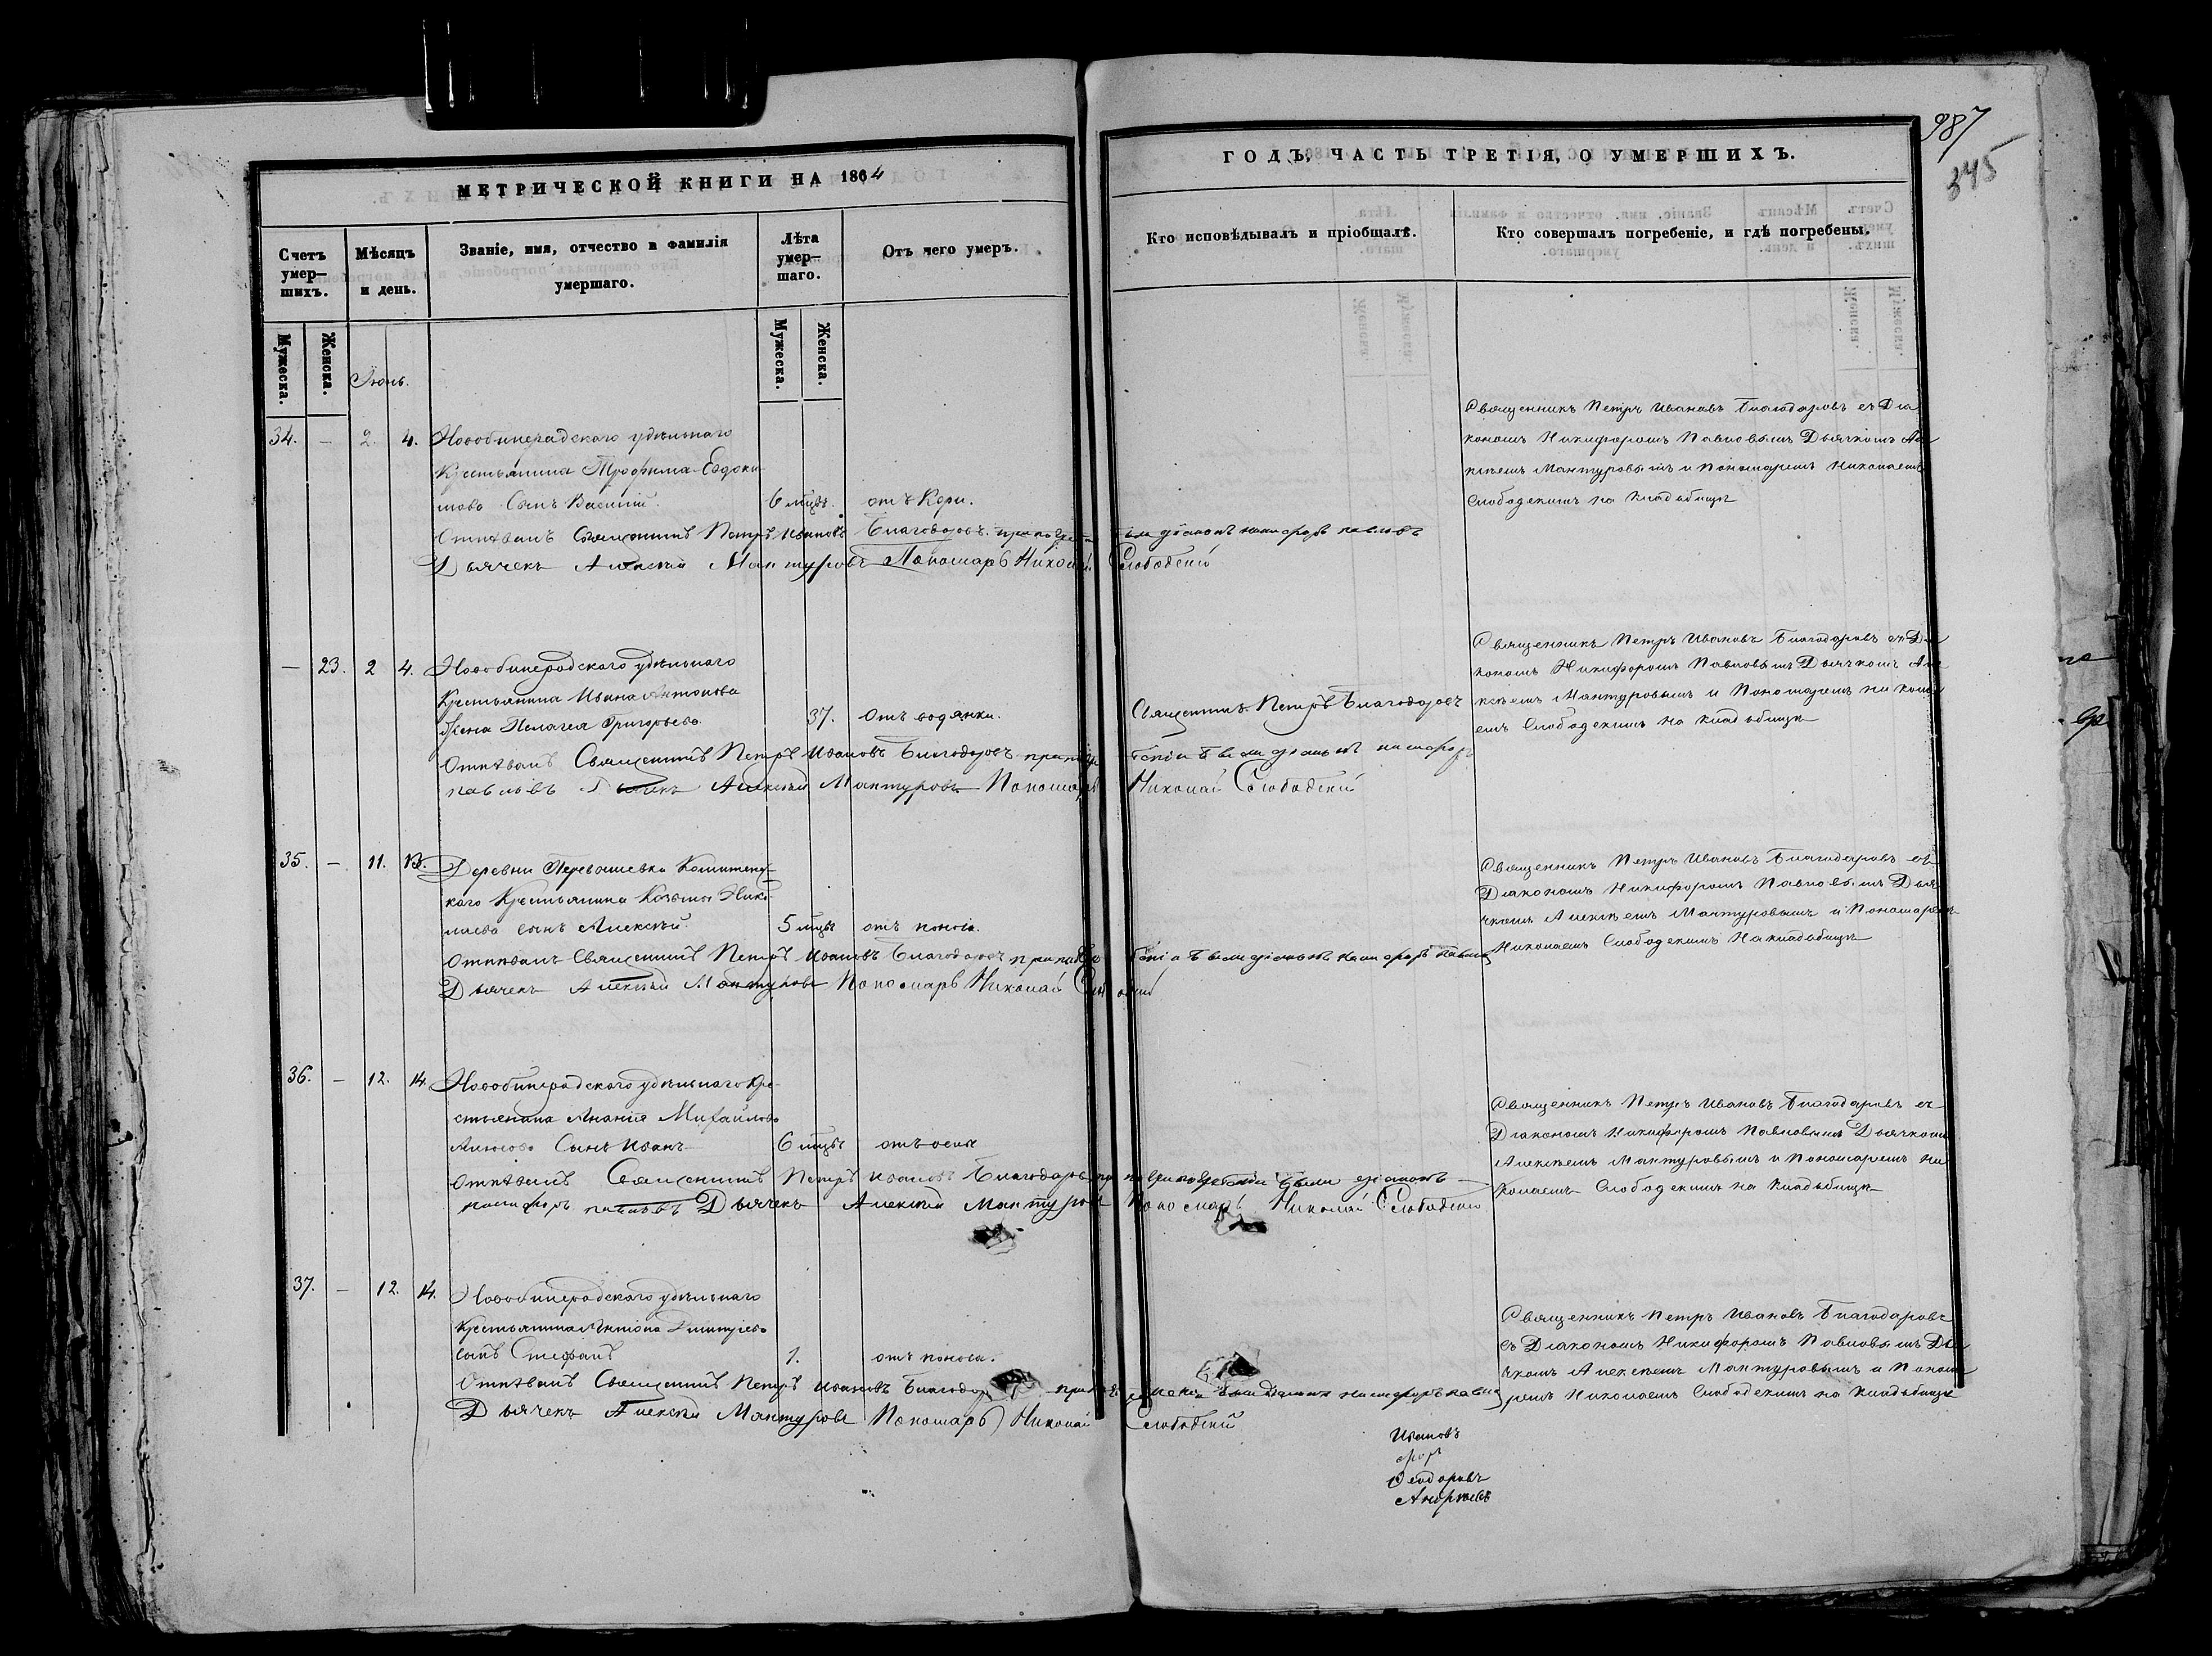 987
345
МЕТРИЧЕСКОЙ КНИГИ НА 1864
ГОДЪ, ЧАСТЬ ТРЕТІЯ, О УМЕРШИХЪ.
Счетъ умер–шихъ.
Мѣсяцъ и день.
Званіе, имя, отчество и фамилія умершаго.
Лѣта умер–шаго.
Отъ чего умеръ.
Кто исповѣдывалъ и пріобщалъ.
Кто совершалъ погребеніе, и гдѣ погребены.
Мужеска.
Женска.
Мужеска.
Женска.
Іюнь.
34. — 2. 4. Новобинерадскаго удѣльнаго
Крестьянина Трофима Евдоки
мова Сынъ Василій. 6 мцвъ. отъ Кори.
Священникъ Петръ Ивановъ Благодаровъ съ Діа
кономъ Никифоромъ Павловымъ Дьячкомъ Але
ксѣемъ Мантуровымъ и Пономаремъ Николаемъ
Слободскимъ на кладбищѣ
Отпѣвалъ Священникъ Петръ Ивановъ Благодаровъ
діаконъ никифоръ павловъ
Дьячекъ Алексѣй Мантуровъ Пономарь Николай Слободскій
— 23. 2 4. Новобинерадскаго удѣльнаго
Крестьянина Ивана Антонова
Жена Пелагея Григорьева. 37. Отъ водянки.
Священникъ Петръ Благодаровъ
Священникъ Петръ Ивановъ Благодаровъ съ Діа
кономъ Никифоромъ Павловымъ Дьячкомъ Але
ксѣемъ Мантуровымъ и Пономаремъ Никола
емъ Слободскимъ на кладбищѣ
Отпѣвалъ Священникъ Петръ Ивановъ Благодаровъ
павловъ Дьячекъ Алексѣй Мантуровъ Пономарь Николай Слободскій
35. — 11. 13. Деревни Черевашевки Комитетс
каго Крестьянина Козьмы Нико
лаева сынъ Алексѣй. 5 мцвъ отъ поноса.
Священникъ Петръ Ивановъ Благодаровъ съ
Діакономъ Никифоромъ Павловымъ Дья
чкомъ Алексѣемъ Мантуровымъ и Пономаремъ
Николаемъ Слободскимъ На кладбищѣ
Отпѣвалъ Священникъ Петръ Ивановъ Благодаровъ
Дьячекъ Алексѣй Мантуровъ Пономарь Николай Слободскій
36. — 12. 14. Новобинерадскаго удѣльнаго Кре
стьянина Ананія Михайлова
Сынъ Иванъ 6 мцвъ отъ оспы
Священникъ Петръ Ивановъ Благодаровъ съ
Діакономъ Никифоромъ Павловымъ Дьячкомъ
Алексѣемъ Мантуровымъ и Пономаремъ Ни
колаемъ Слободскимъ на кладбищѣ
Отпѣвалъ Священникъ Петръ Ивановъ Благодаровъ
никифоръ павловъ Дьячекъ Алексѣй Мантуровъ Пономарь Николай Слободскій
37. — 12. 14. Новобинерадскаго удѣльнаго
Крестьянина Антона Дмитріева
сынъ Стефанъ 1. отъ поноса.
Священникъ Петръ Ивановъ Благодаровъ
съ Діакономъ Никифоромъ Павловымъ Дья
чкомъ Алексѣемъ Мантуровымъ и Понома
ремъ Николаемъ Слободскимъ на кладбищѣ
Отпѣвалъ Священникъ Петръ Ивановъ
Дьячекъ Алексѣй Мантуровъ Пономарь Николай Слободскій
Ивановъ
Ѳеодоровъ
Андреевъ